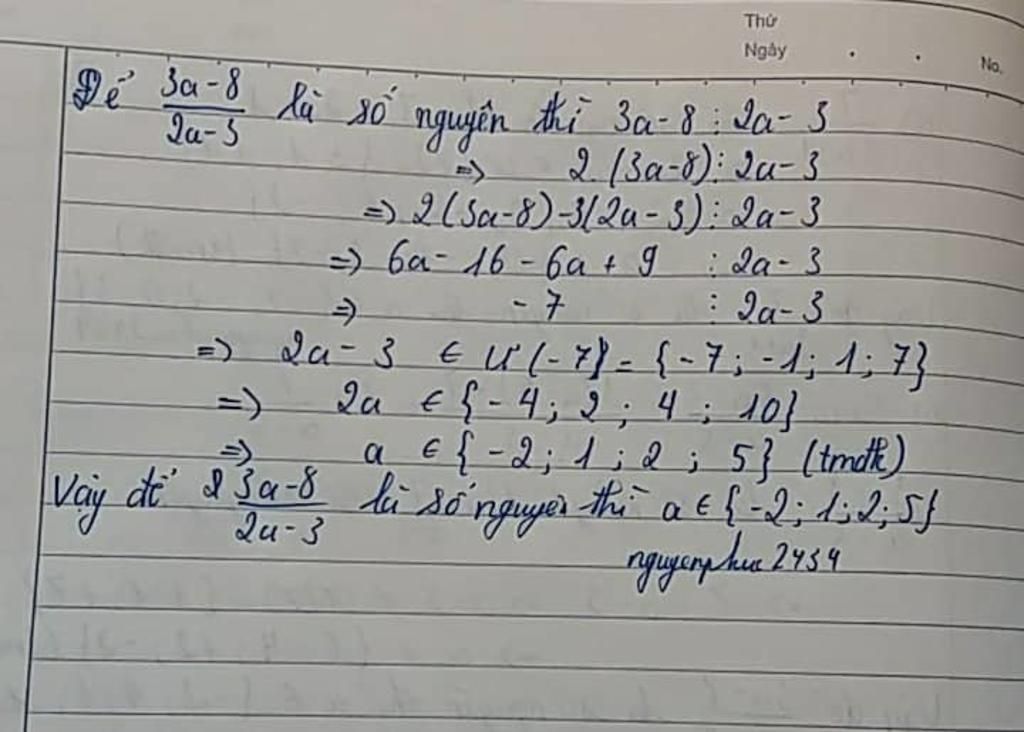 Thứ
Ngày . . No.
Để \frac{3a-8}{2a-3} là số nguyên thì 3a-8 ⋮ 2a-3
=> 2.(3a-8) ⋮ 2a-3
=> 2(3a-8)-3(2a-3) ⋮ 2a-3
=> 6a-16-6a+9 ⋮ 2a-3
=> -7 ⋮ 2a-3
=> 2a-3 ∈ Ư(-7}={-7;-1;1;7}
=> 2a ∈ {-4;2;4;10}
=> a ∈ {-2;1;2;5} (tmđk)
Vậy để 2 \frac{3a-8}{2a-3} là số nguyên thì a ∈ {-2;1;2;5}
nguyenphuc2454